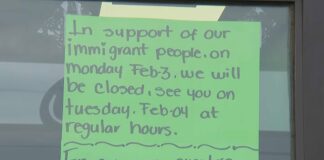 In support of our
immigrant people, on
monday Feb-3, we will
be closed, see you on
tuesday. Feb-04 at
regular hours.